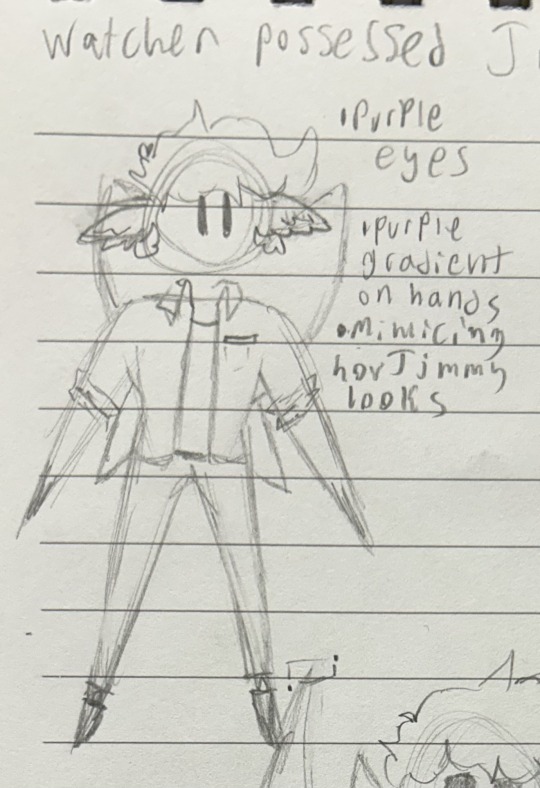 Watcher possessed J
•Purple
eyes
•purple
gradient
on hands
•Mimicing
how Jimmy
looks